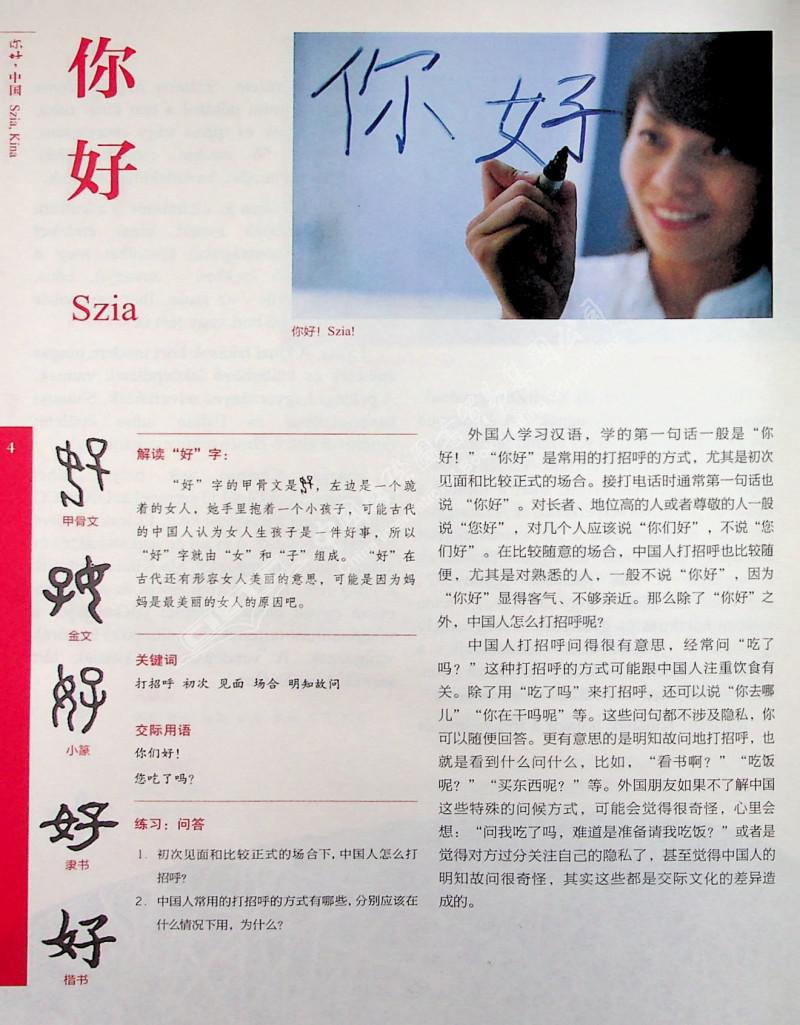 你好·中国 Szia, Kina
你好
Szia
你好
你好！Szia!
4
甲骨文
金文
小篆
隶书
楷书
解读“好”字：
“好”字的甲骨文是，左边是一个跪
着的女人，她手里抱着一个小孩子，可能古代
的中国人认为女人生孩子是一件好事，所以
“好”字就由“女”和“子”组成。 “好”在
古代还有形容女人美丽的意思，可能是因为妈
妈是最美丽的女人的原因吧。
关键词
打招呼 初次 见面 场合 明知故问
交际用语
你们好！
您吃了吗？
练习：问答
1. 初次见面和比较正式的场合下，中国人怎么打
招呼？
2. 中国人常用的打招呼的方式有哪些，分别应该在
什么情况下用，为什么？
外国人学习汉语，学的第一句话一般是“你
好！”“你好”是常用的打招呼的方式，尤其是初次
见面和比较正式的场合。接打电话时通常第一句话也
说 “你好”。对长者、地位高的人或者尊敬的人一般
说“您好”，对几个人应该说“你们好”，不说“您
们好”。在比较随意的场合，中国人打招呼也比较随
便，尤其是对熟悉的人，一般不说“你好”，因为
“你好”显得客气、不够亲近。那么除了“你好”之
外，中国人怎么打招呼呢？
中国人打招呼问得很有意思，经常问“吃了
吗？”这种打招呼的方式可能跟中国人注重饮食有
关。除了用“吃了吗”来打招呼，还可以说“你去哪
儿”“你在干吗呢”等。这些问句都不涉及隐私，你
可以随便回答。更有意思的是明知故问地打招呼，也
就是看到什么问什么，比如，“看书啊？”“吃饭
呢？”“买东西呢？”等。外国朋友如果不了解中国
这些特殊的问候方式，可能会觉得很奇怪，心里会
想：“问我吃了吗，难道是准备请我吃饭？”或者是
觉得对方过分关注自己的隐私了，甚至觉得中国人的
明知故问很奇怪，其实这些都是交际文化的差异造
成的。